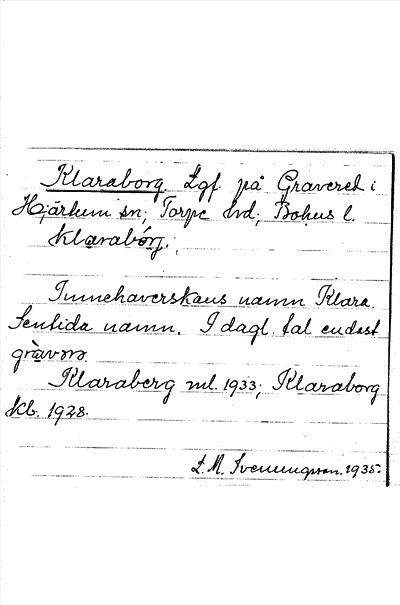 Klaraborg. Lgf. på Graveret i
Hjärtum sn; Torpe hd; Bohus l.
klarabórg.
Innehaverskans namn Klara.
Sentida namn. I dagl. tal endast
gràvərə.
Klaraberg ml. 1933; Klaraborg
kb. 1928.
L. M. Svenungsson. 1935.